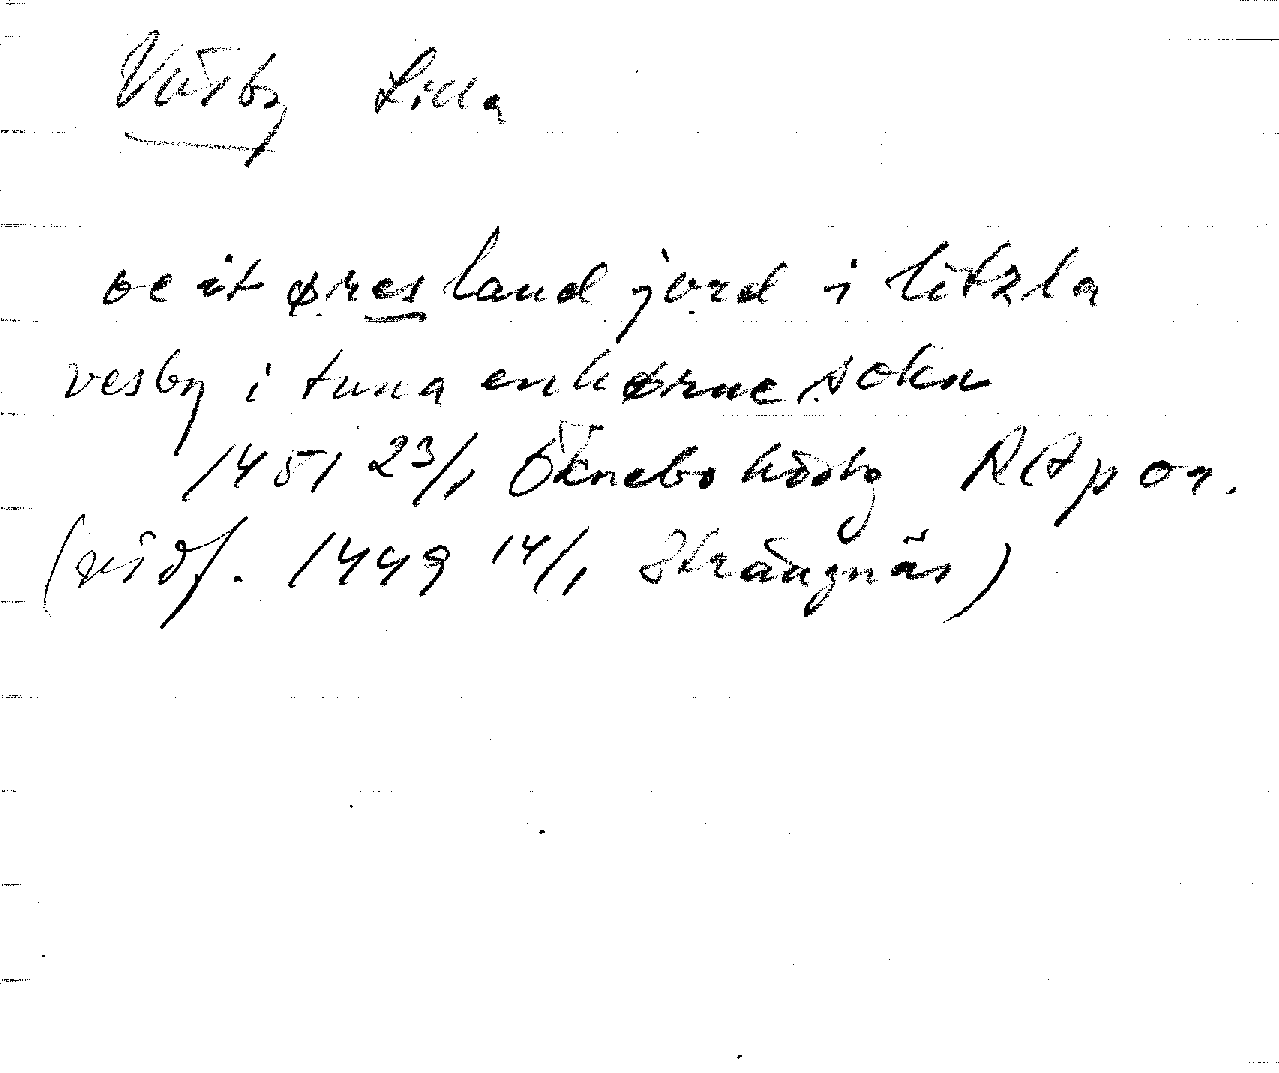 Väsby Lilla
oc it øres land jord i litzla
vesby i tuna enhørne sokn
1451 23/1 Öknebo hdstg RAp or.
(vidf. 1449 14/1 Strängnäs)